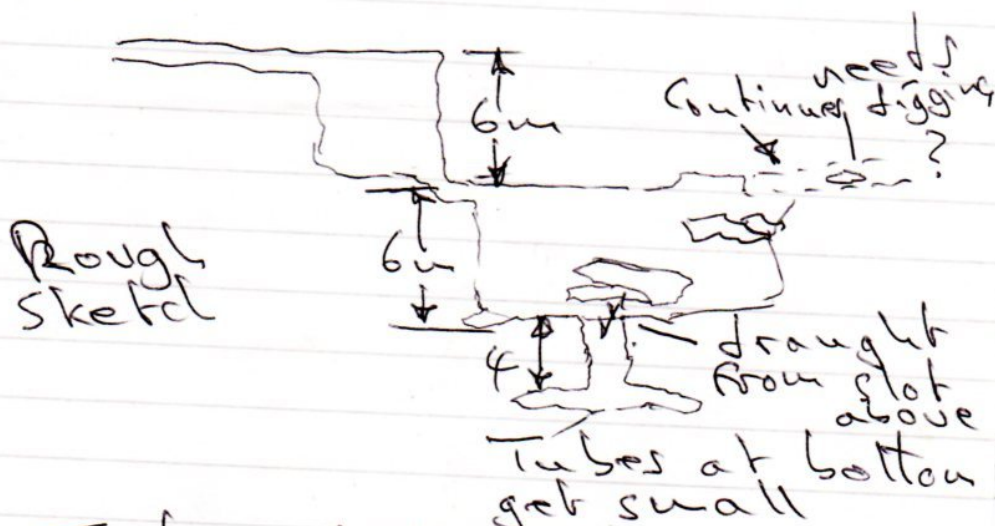 needs
Continues digging
?
6m
Rough
Sketch
6m
4
draught
from slot
above
Tubes at bottom
get small